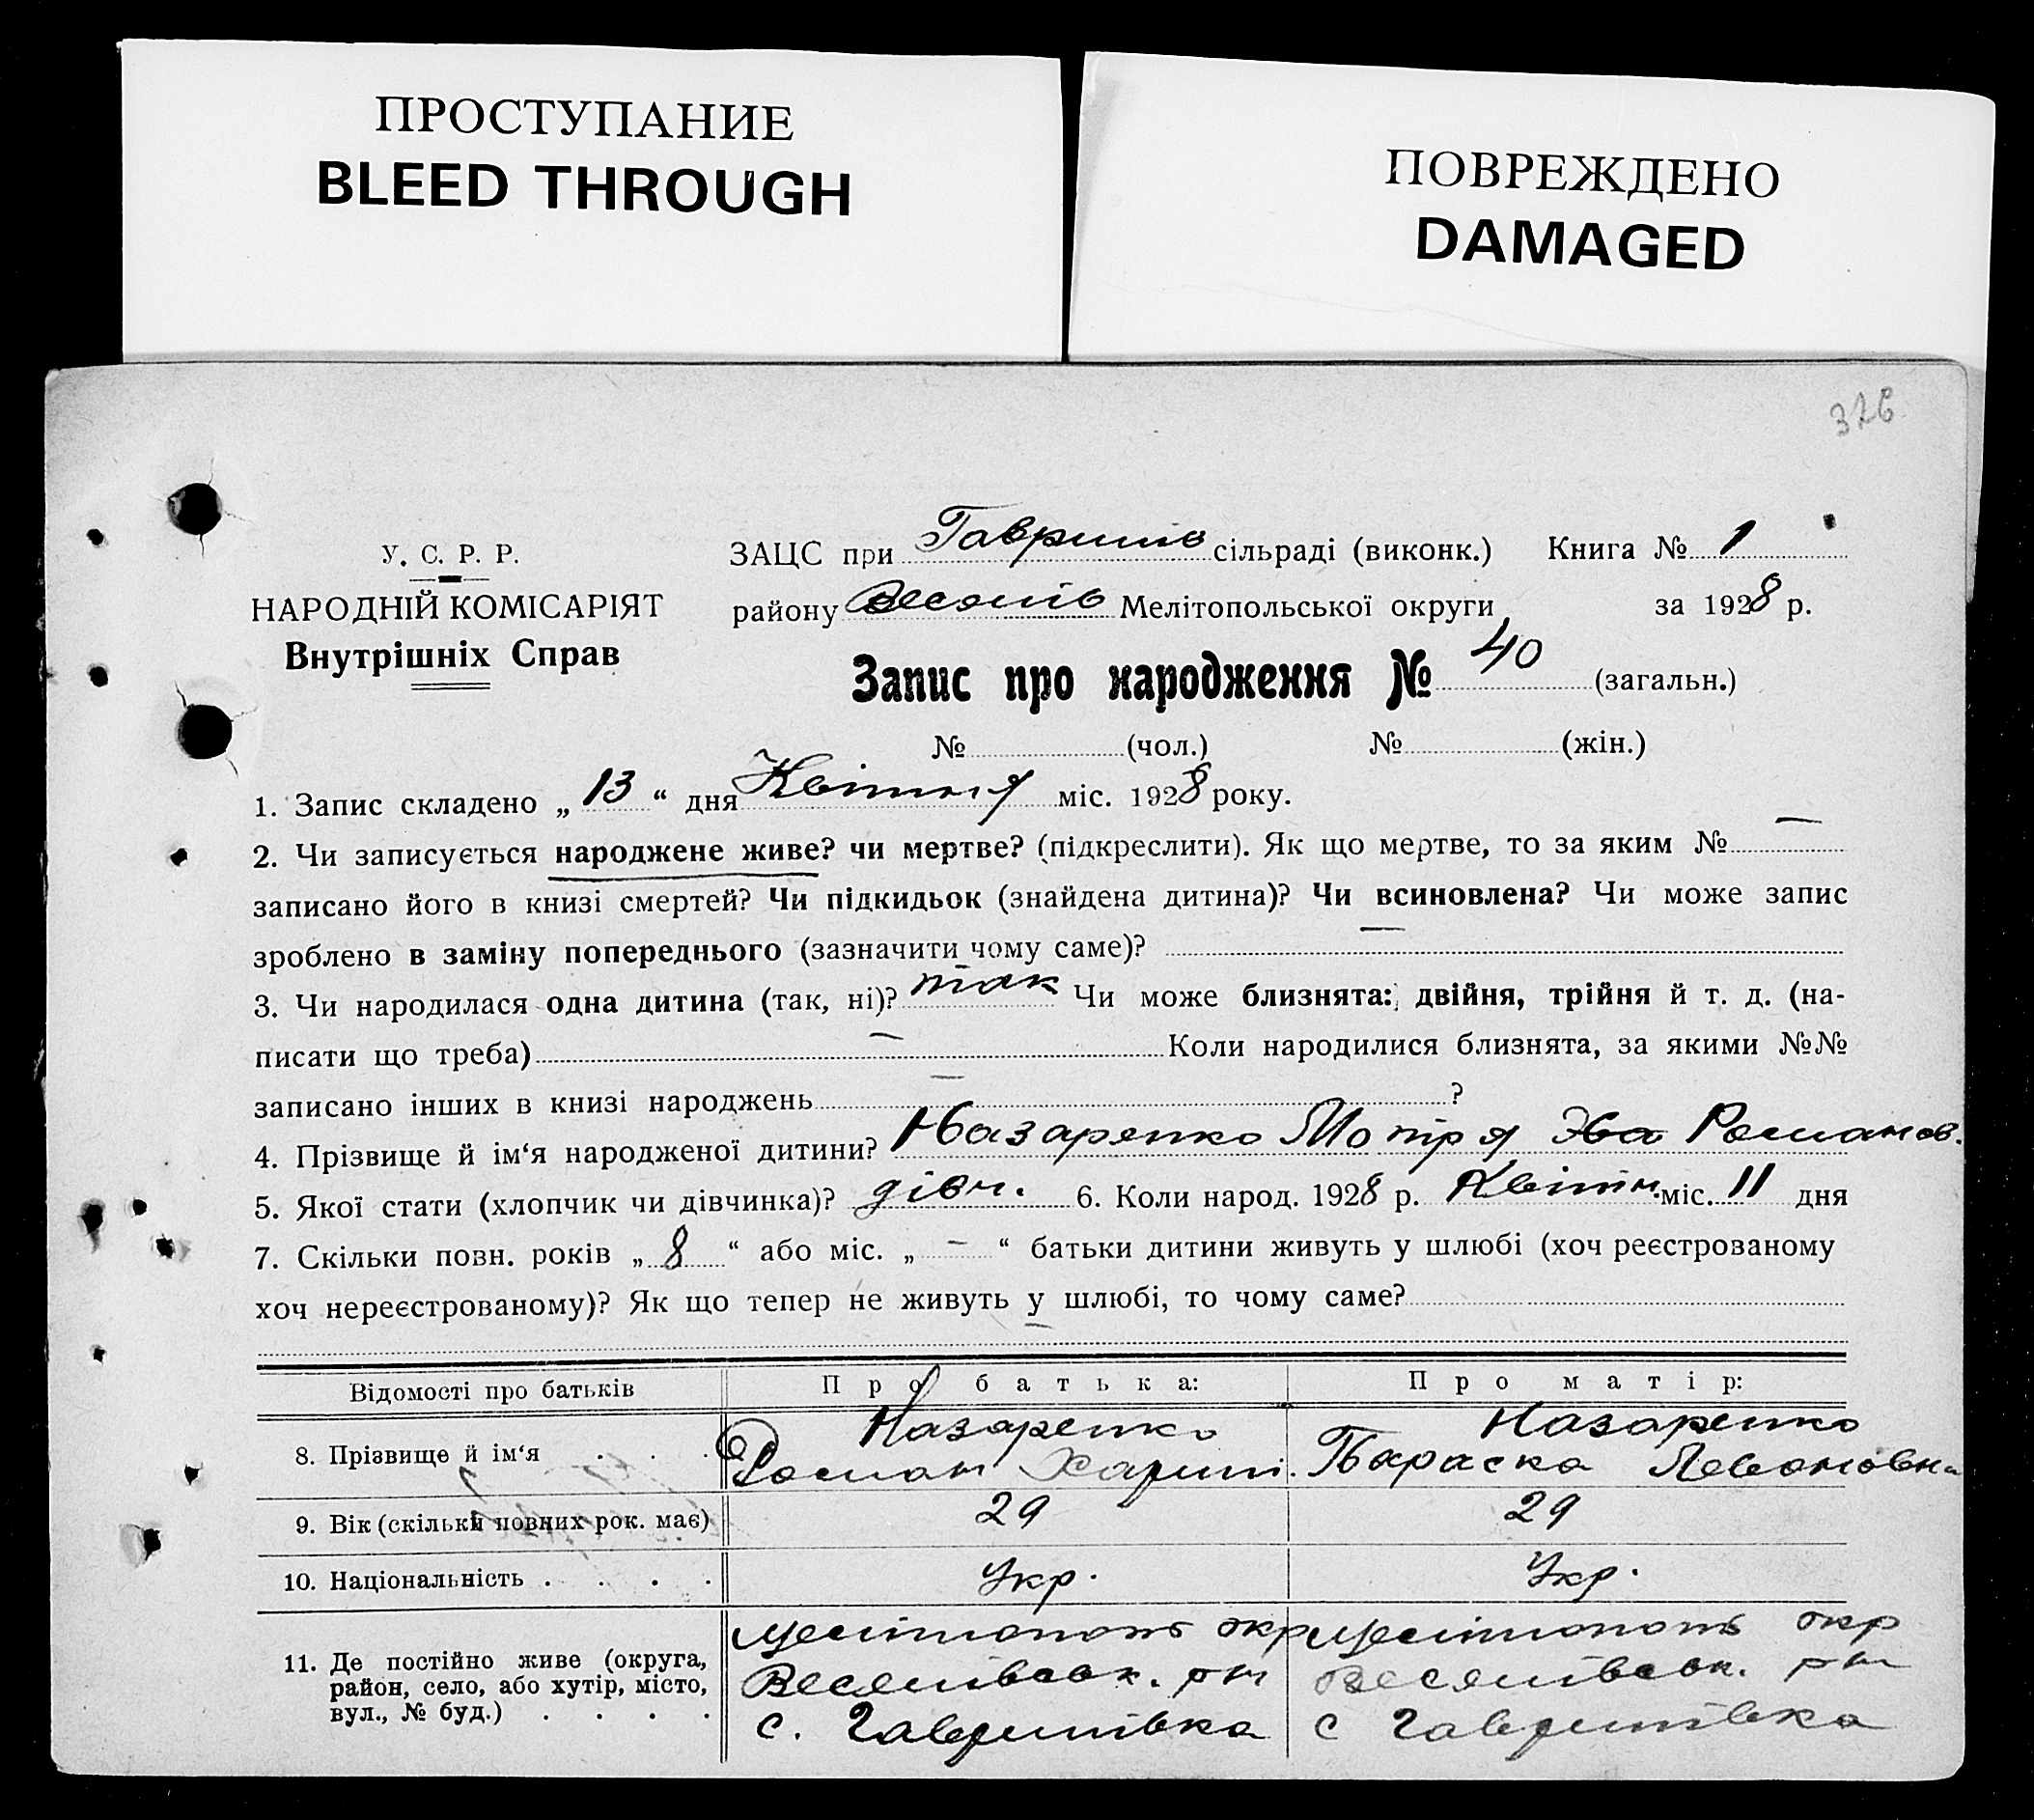 ПРОСТУПАНИЕ
BLEED THROUGH
ПОВРЕЖДЕНО
DAMAGED
326
У. С. Р. Р.
НАРОДНІЙ КОМІСАРІЯТ
Внутрішніх Справ
ЗАЦС при Гаврилів сільраді (виконк.) Книга № 1
району Веселів Мелітопольської округи за 1928 р.
Запис про народження № 40 (загальн.)
№ (чол.) № (жін.)
1. Запис складено „ 13 “ дня Квітня міс. 1928 року.
2. Чи записується народжене живе? чи мертве? (підкреслити). Як що мертве, то за яким № —
записано його в книзі смертей? Чи підкидьок (знайдена дитина)? Чи всиновлена? Чи може запис
зроблено в заміну попереднього (зазначити чому саме)? —
3. Чи народилася одна дитина (так, ні)? так Чи може близнята: двійня, трійня й т. д. (на-
писати що треба) — Коли народилися близнята, за якими №№
записано інших в книзі народжень — ?
4. Прізвище й ім‘я народженої дитини? Назаренко Мотря Романов.
5. Якої стати (хлопчик чи дівчинка)? дівч. 6. Коли народ. 1928 р. Квітн. міс. 11 дня
7. Скільки повн. років „ 8 “ або міс. „ – “ батьки дитини живуть у шлюбі (хоч реєстрованому
хоч нереєстрованому)? Як що тепер не живуть у шлюбі, то чому саме?
Відомості про батьків Про батька: Про матір:
8. Прізвище й ім‘я . . . Назаренко Роман Харит. Назаренко Параска Левоновна
9. Вік (скільки повних рок. має) 29 29
10. Національність . . . . Укр. Укр.
11. Де постійно живе (округа, Мелітополь окр Мелітополь окр
район, село, або хутір, місто, Веселівськ. рн Веселівськ. рн
вул., № буд.) . . . . с. Гаврилівка с Гаврилівка